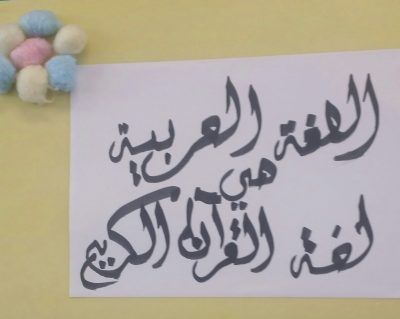 اللغة العربية
هي
لغة القرآن الكريم